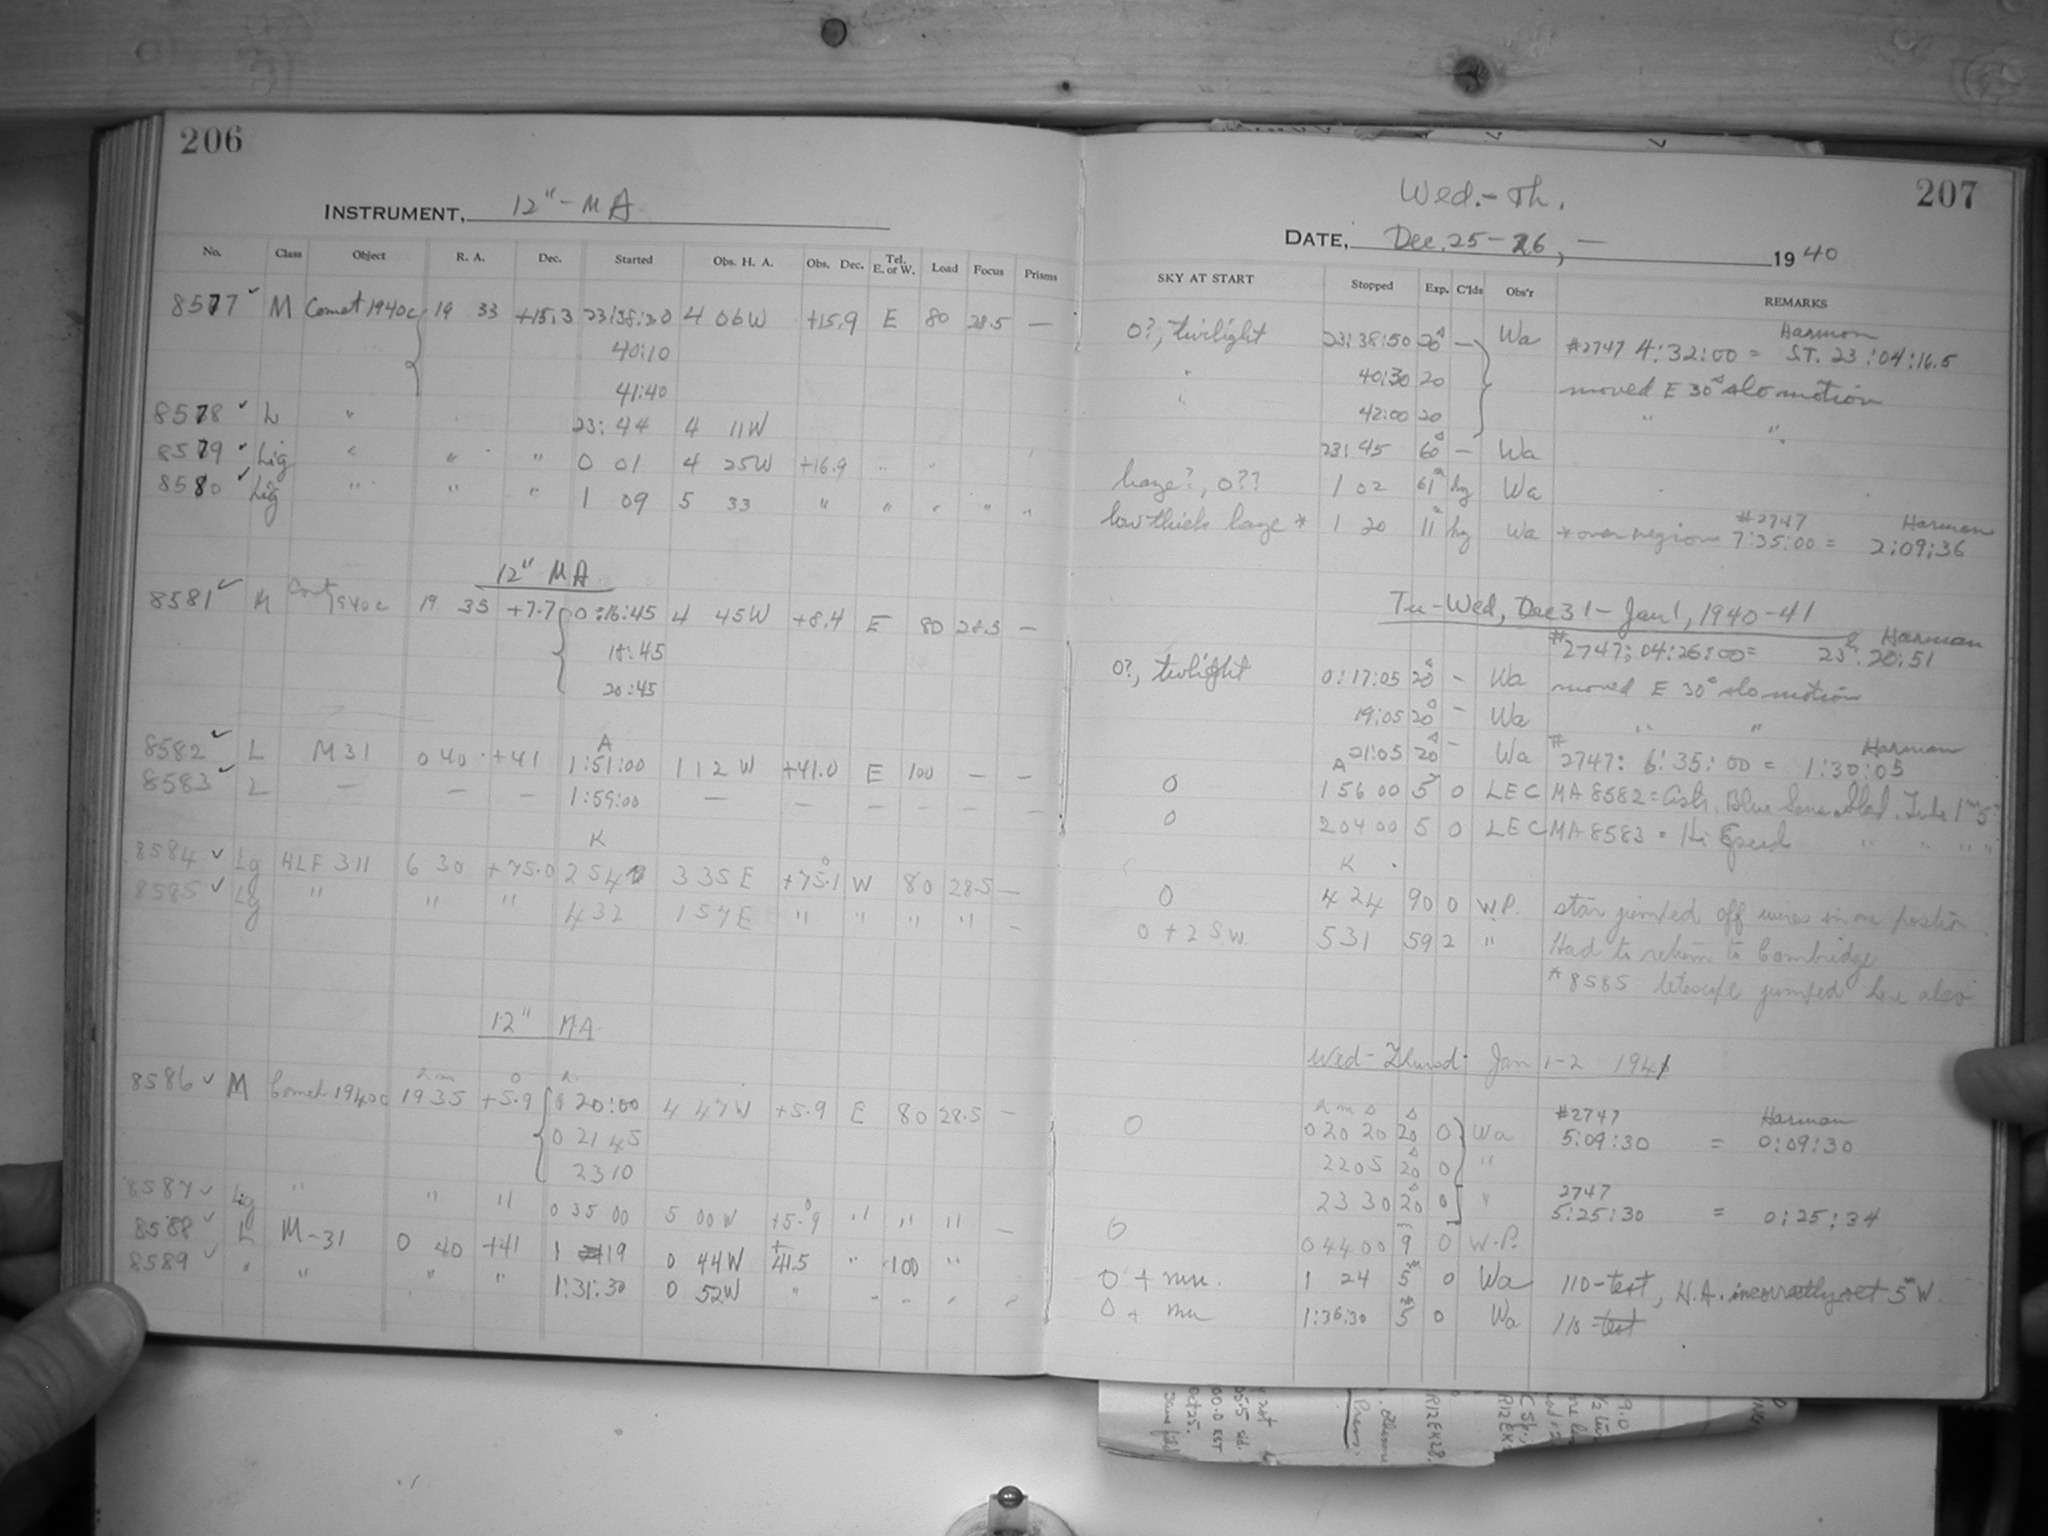 206
INSTRUMENT, 12" - MA
No. Class Object R. A. Dec. Started Obs. H. A. Obs. Dec. Tel. E. or W. Load Focus Prisms
8577 ✓ M Comet 1940c 19 33 +15.3 23:38:30 4 06W +15.9 E 80 28.5 —
40:10
41:40
8578 ✓ L " 23:44 4 11W
8579 ✓ Lig " " " 0 01 4 25W +16.9 " "
8580 ✓ Lig " " " 1 09 5 33 " " " " "
12" MA
8581 ✓ M Comet 1940c 19 35 +7.7 0:16:45 4 45W +8.4 E 80 28.5 —
18:45
20:45
A
8582 ✓ L M31 0 40 +41 1:51:00 1 12 W +41.0 E 100 — —
8583 ✓ L — — — 1:59:00 — — — — — —
K
8584 ✓ Lg HLF 311 6 30 +75.0 2 54 3 35 E +75.1 W 80 28.5 —
8585 ✓ Lg " " " 4 32 1 57 E " " " " —
12" MA
h m ° h
8586 ✓ M Comet 1940c 19 35 +5.9 0 20:00 4 47W +5.9 E 80 28.5 —
0 21 45
23 10
8587 ✓ Lig " " " 0 35 00 5 00W +5.9 " " " —
8588 ✓ L M-31 0 40 +41 1 19 0 44W +41.5 " 100 "
8589 ✓ " " " " 1:31:30 0 52W " " " " "
207
Wed.-Th.
DATE, Dec. 25-26, — 1940
SKY AT START Stopped Exp. C'lds Obs'r REMARKS
0?, twilight 23:38:50 20s — Wa #2747 4:32:00 = Harmon S.T. 23:04:16.5
" 40:30 20 moved E 30s slo motion
" 42:00 20 " "
23:45 60s — Wa
haze?, 0?? 1 02 61m hzy Wa
low thick haze * 1 20 11m hzy Wa * over region #2747 7:35:00 = Harmon 2:09:36
Tu-Wed, Dec 31 - Jan 1, 1940-41
#2747: 04:26:00 = Harman 23:20:51
0?, twilight 0:17:05 20s — Wa moved E 30s slo motion
19:05 20s — Wa " "
21:05 20s — Wa #2747: 6:35:00 = Harman 1:30:05
A
0 1 56 00 5 0 LEC MA 8582 = Blue
0 2 04 00 5 0 LEC MA 8583 = Hi Speed " " " "
K
0 4 24 90 0 W.P. star jumped off wires in one position
0 + 2 S.W. 5 31 59 2 " Had to return to Cambridge
* 8585 telescope jumped here also
Wed-Thursd- Jan 1-2 1941
h m s s
0 0 20 20 20 0 Wa #2747 5:09:30 = Harman 0:09:30
22 05 20s 0 "
23 30 20s 0 " 2747 5:25:30 = 0:25:34
0 0 44 00 9m 0 W.P.
0 + 1 24 5m 0 Wa 110-test, H.A. incorrectly set 5m W.
0 + 1:36:30 5 0 Wa 110 test